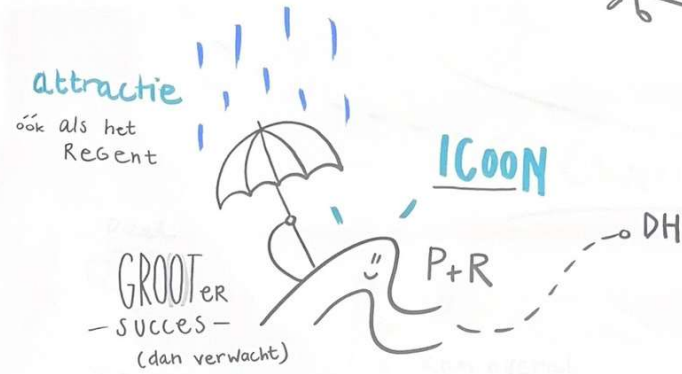 attractie
óók als het
REGENT
ICOON
GROOTER
- SUCCES -
(dan verwacht)
P+R
DH